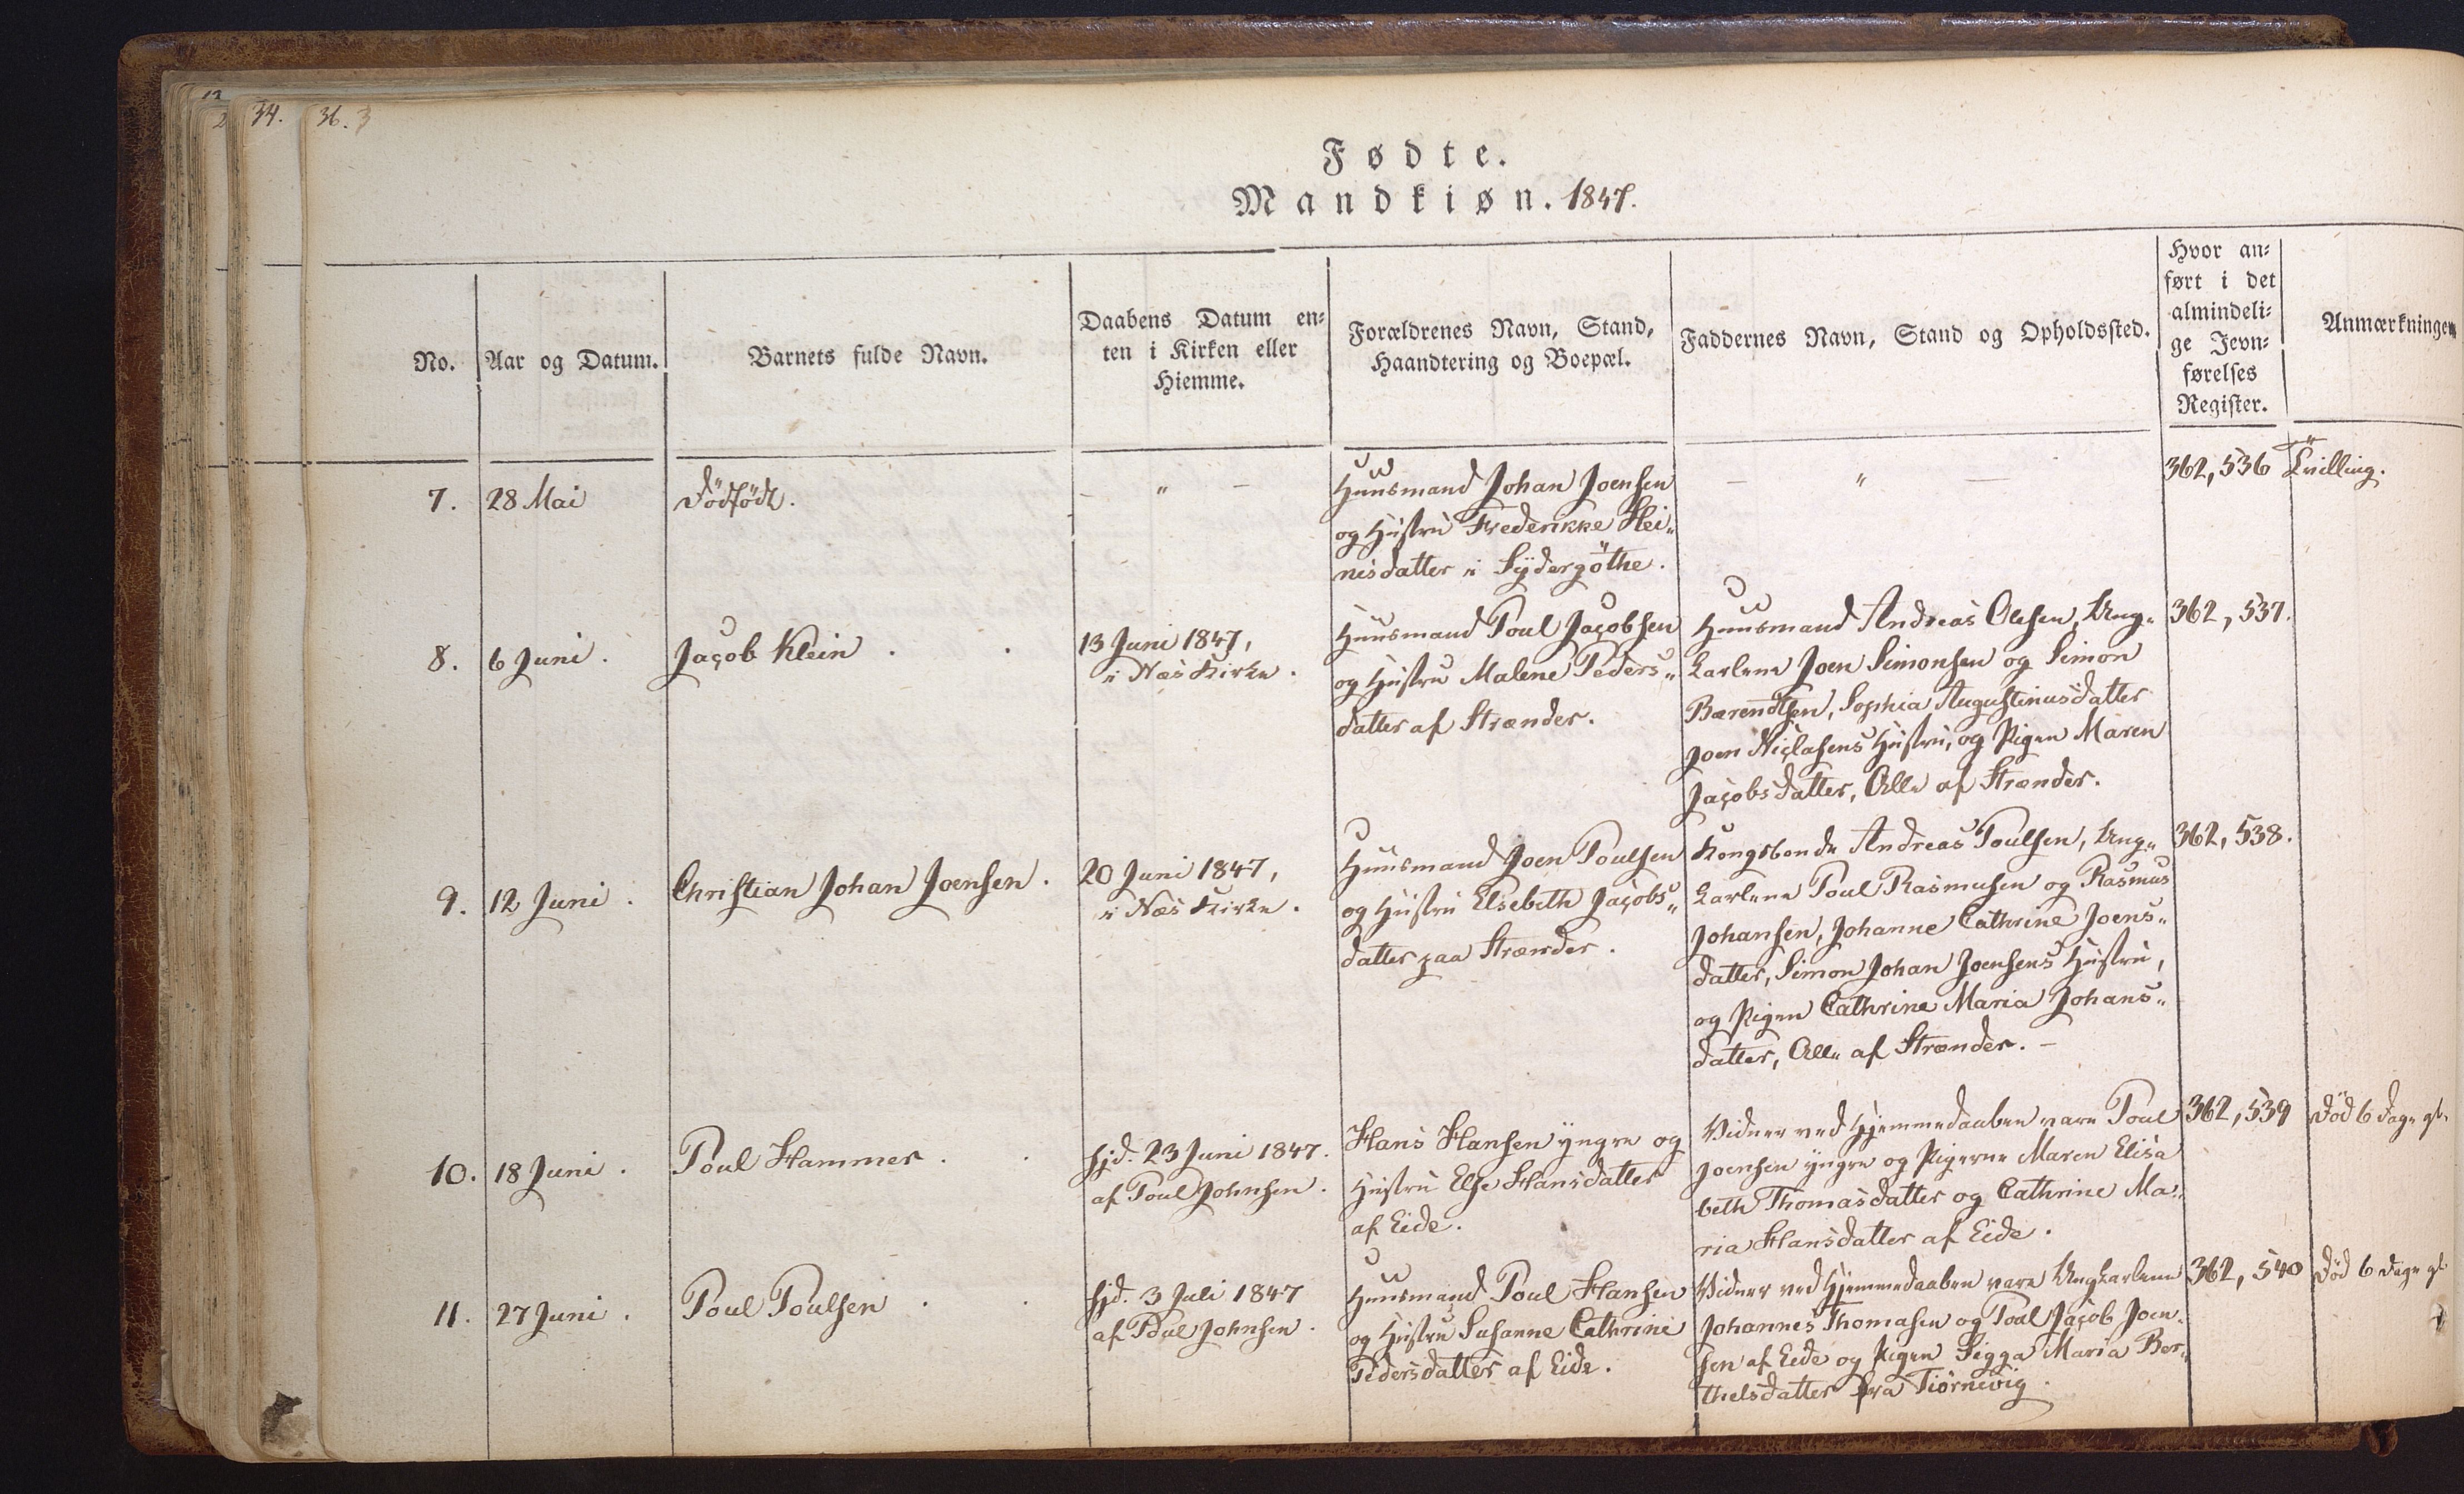 34.
36.
Fødte.
Mandkiøn. 1847.
No.
Aar og Datum.
Barnets fulde Navn.
Daabens Datum en=
ten i Kirken eller
Hiemme.
Forældrenes Navn, Stand,
Haandtering og Boepæl.
Faddernes Navn, Stand og Opholdssted.
Hvor an=
ført i det
almindeli=
ge Jevn=
førelses
Register.
Anmærkninger
7.
28 Mai
Dødfødt.
- " -
Huusmand Johan Joensen
og Hustru Frederikke Hei„
nesdatter i Sydergöthe.
- " -
362, 536
Tvilling.
8.
6 Juni.
Jacob Klein . .
13 Juni 1847,
i Næs Kirke.
Huusmand Poul Jacobsen
og Hustru Malene Peders„
datter af Strænder.
Huusmand Andreas Olesen, Ung„
karlene Joen Simonsen og Simon
Bærendtsen, Sophia Augustinusdatter
Joen Niclasens Hustru, og Pigen Maren
Jacobsdatter, Alle af Strænder.
362, 537.
9.
12 Juni.
Christian Johan Joensen.
20 Juni 1847,
i Næs Kirke.
Huusmand Joen Poulsen
og Hustru Elsebeth Jacobs„
datter paa Strænder.
Kongsbonde Andreas Poulsen, Ung„
karlene Poul Rasmusen og Rasmus
Johansen, Johanne Cathrine Joens„
datter, Simon Johan Joensens Hustru,
og Pigen Cathrine Maria Johans„
datter, Alle af Strænder. -
362, 538.
10.
18 Juni.
Poul Hammer . .
Hjd. 23 Juni 1847.
af Poul Johnsen.
Hans Hansen yngre og
Hustru Else Hansdatter
af Eide.
Vidner ved Hjemmedaaben vare Poul
Joensen yngre og Pigerne Maren Elisa
beth Thomasdatter og Cathrine Ma„
ria Hansdatter af Eide.
362, 539
Død 6 Dage gl.
11.
27 Juni.
Poul Poulsen . .
Hjd. 3 Juli 1847
af Poul Johnsen.
Huusmand Poul Hansen
og Hustru Susanne Cathrine
Pedersdatter af Eide.
Vidner ved Hjemmedaaben vare Ungkarlene
Johannes Thomasen og Poul Jacob Joen„
sen af Eide og Pigen Sigga Maria Ber„
thelsdatter fra Tiørnevig.
362, 540
Død 6 Dage gl.